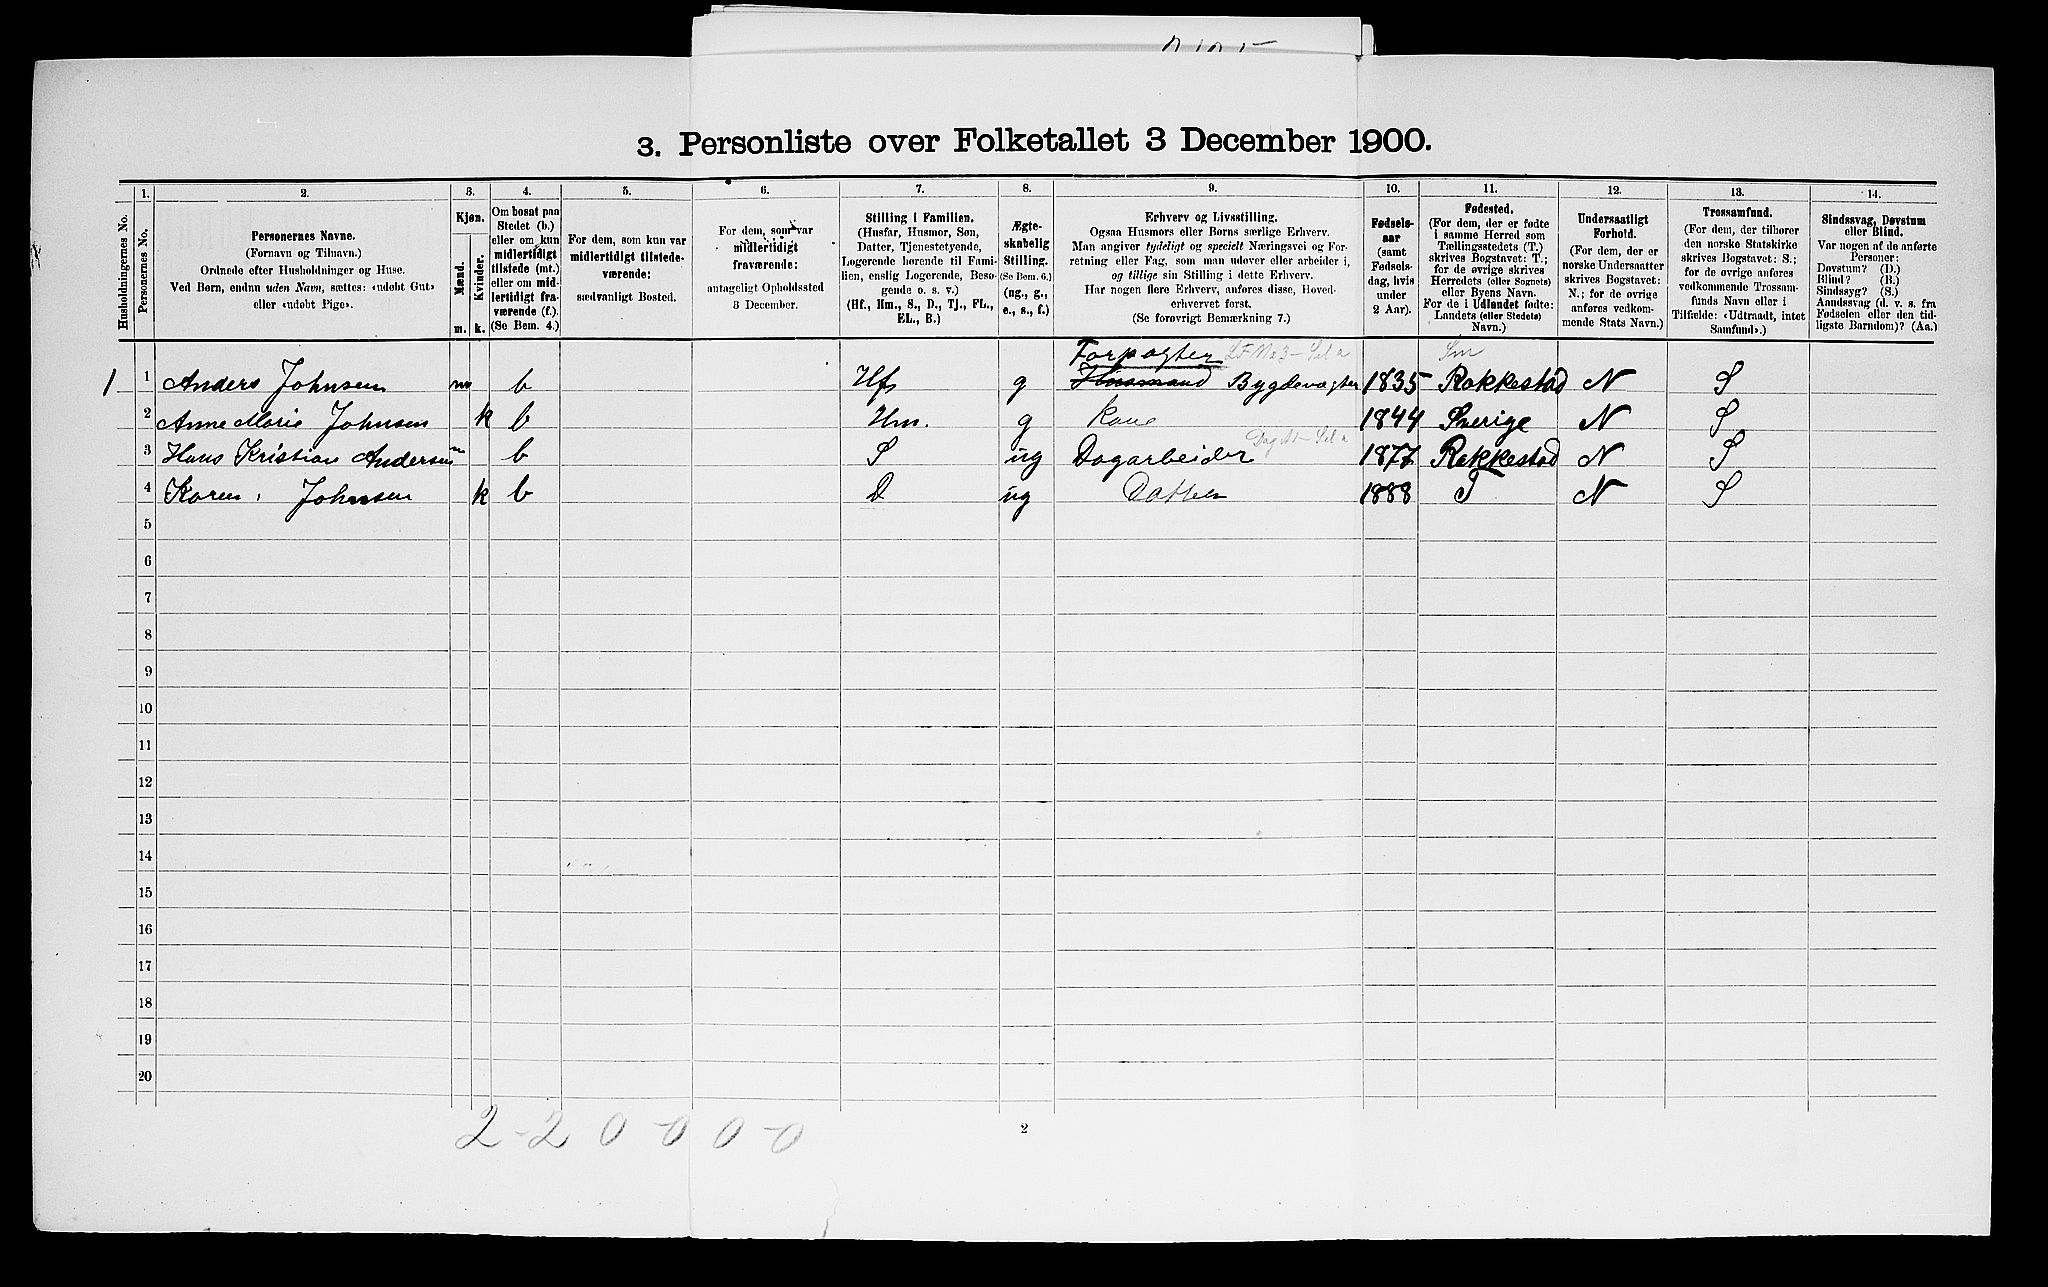 3. Personliste over Folketallet 3 December 1900.
Husholdningernes No.
1.
Personernes No.
2.
Personernes Navne.
(Fornavn og Tilnavn.)
Ordnede efter Husholdninger og Huse.
Ved Børn, endnu uden Navn, sættes: «udøbt Gut»
eller «udøbt Pige».
3.
Kjøn.
Mænd.
Kvinder.
m. k.
4.
Om bosat paa
Stedet (b.)
eller om kun
midlertidigt
tilstede (mt.)
eller om mid-
lertidigt fra-
værende (f.).
(Se Bem. 4.)
5.
For dem, som kun var
midlertidigt tilstede-
værende:
sædvanligt Bosted.
6.
For dem, som var
midlertidigt
fraværende:
antageligt Opholdssted
3 December.
7.
Stilling i Familien.
(Husfar, Husmor, Søn,
Datter, Tjenestetyende,
Logerende hørende til Fami-
lien, enslig Logerende, Beso-
gende o. s. v.)
(Hf., Hm., S., D., Tj., FL.,
EL., B.)
8.
Ægte-
skabelig
Stilling.
(Se Bem. 6.)
(ug., g.,
e., s., f.)
9.
Erhverv og Livsstilling.
Ogsaa Husmors eller Børns særlige Erhverv.
Man angiver tydeligt og specielt Næringsvei og For-
retning eller Fag, som man udøver eller arbeider i,
og tillige sin Stilling i dette Erhverv.
Har nogen flere Erhverv, anføres disse, Hoved-
erhvervet først.
(Se forøvrigt Bemærkning 7.)
10.
Fødsels-
aar
(samt
Fødsels-
dag, hvis
under
2 Aar).
11.
Fødested.
(For dem, der er fødte
i samme Herred som
Tællingsstedets (T.)
skrives Bogstavet: T.;
for de øvrige skrives
Herredets (eller Sognets)
eller Byens Navn.
For de i Udlandet fødte:
Landets (eller Stedets)
Navn.)
12.
Undersaatligt
Forhold.
(For dem, der er
norske Undersaatter
skrives Bogstavet:
N.; for de øvrige
anføres vedkom-
mende Stats Navn.)
13.
Trossamfund.
(For dem, der tilhører
den norske Statskirke
skrives Bogstavet: S.;
for de øvrige anføres
vedkommende Trossam-
funds Navn eller i
Tilfælde: «Udtraadt, intet
Samfund».)
14.
Sindssvag, Døvstum
eller Blind.
Var nogen af de anførte
Personer:
Døvstum? (D.)
Blind? (B.)
Sindssyg? (S.)
Aandssvag (d. v. s. fra
Fødselen eller den tid-
ligste Barndom)? (Aa.)
Forpagter
1 1 Anders Johnsen m b Hf g Husmand Bygdevægter 1835 Rakkestad N S
2 Anne Marie Johnsen k b Hm. g Kone 1844 Sverige N S
3 Hans Kristian Andersen m b S ug Dagarbeider 1877 Rakkestad N S
4 Karen Johnsen k b D ug Datter 1888 T N S
5
6
7
8
9
10
11
12
13
14
15
16
17
18
19
20
2-2 0-0 0-0
2